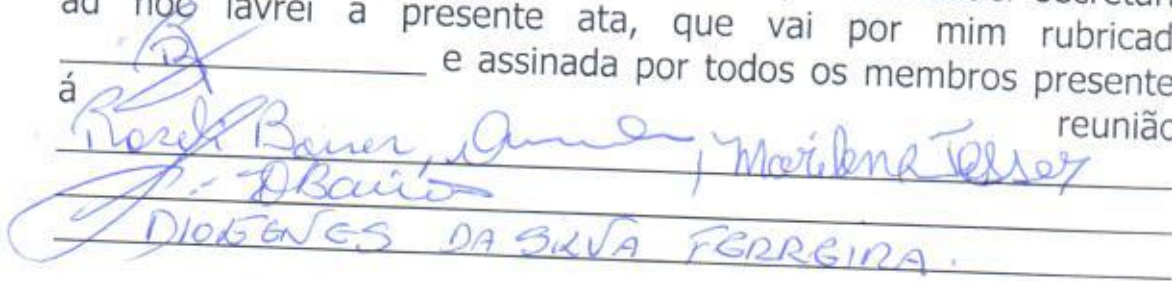 ad hoc lavrei a presente ata, que vai por mim rubricad
e assinada por todos os membros presente
á reunião
Roseli Bauer, Marilene Tesser
DIOGENES DA SILVA FERREIRA.